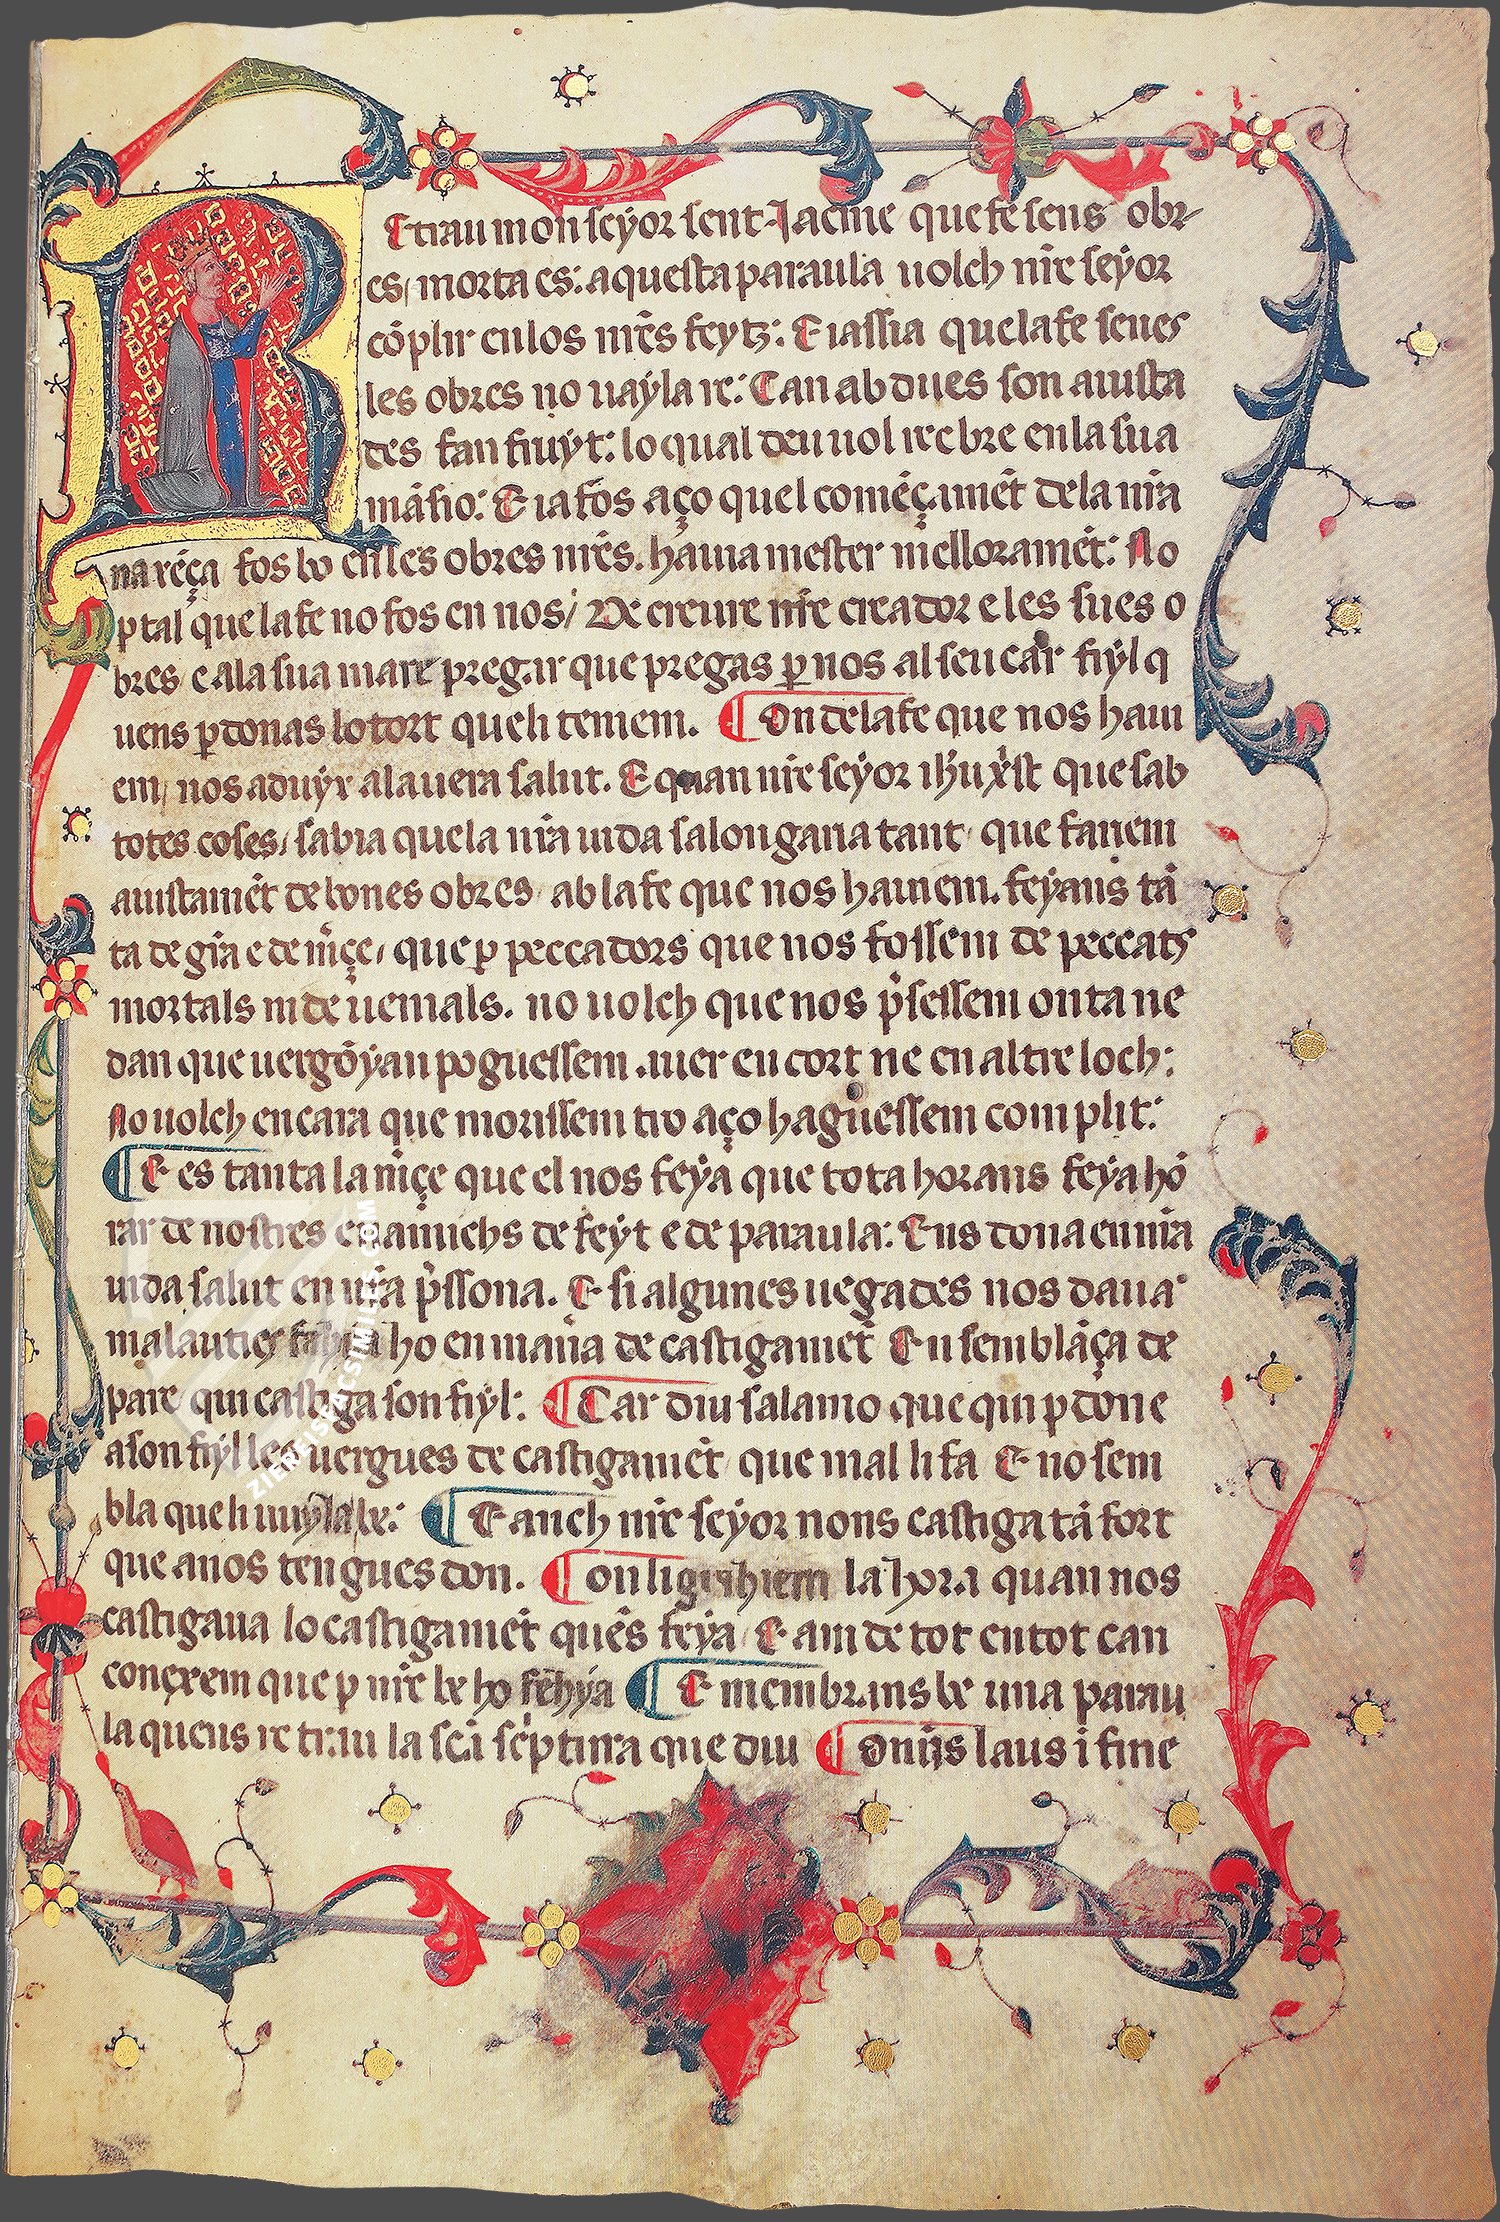 Retrau mon seyor sent Jacme que fe sens obr-
es morta es: aquesta paraula volch nr̄e seyor
cōplir en los nr̄es feyts: E iassia que la fe senes
les obres no vayla re: Can abdues son aiusta
des fan fruyt: lo qual deu vol recbre en la sua
māsio: E ia fos aço quel comēçamēt de la nr̄a
naxēça fos bo en les obres nr̄es. hauia mester melloramēt: No
ꝑ tal que la fe no fos en nos/ De creure nr̄e creador e les sues o
bres e a la sua mare pregar que pregas ꝑ nos al seu car fiyl q
uens ꝑdonas lo tort queli teniem. ¶ On de la fe que nos haui
em/ nos aduyx a la uera salut. E quan nr̄e seyor ih̄u xp̄st que sab
totes coses/ sabia que la nr̄a uida salongaria tant que fariem
aiustamēt de bones obres ab la fe que nos hauiem. feyans tā
ta de gr̄a e de m̄çe/ que ꝑ peccadors que nos fossem de peccats
mortals ni de uenials. no uolch que nos p̄sessem onta ne
dan que uergōyan poguessem auer en cort ne en altre loch:
No uolch encara que morissem tro aço haguessem complit:
¶ E es tanta la m̄çe que el nos feya que tota horans feya hō
rar de nostres enamichs de feyt e de paraula: Ens dona en nr̄a
uida salut en nr̄a p̄ssona. E si algunes uegades nos daua
malauties ho en mań̄a de castigamēt En semblāça de
pare qui castiga son fiyl: ¶ Car diu salamo que qui ꝑdone
a son fiyl les uergues de castigamēt que mal li fa E no sem
bla que li uuyla be: ¶ E anch nr̄e seyor nons castiga tā fort
que a nos tengues don. ¶ On li grahiem la hora quan nos
castigaua lo castigamēt quēs feya E ara de tot en tot can
conexem que ꝑ nr̄e be ho fehya ¶ E membrans be una parau
la quens retrau la sc̄a sc̄ptura que diu ¶ Om̄is laus i fine
ZIEREISFACSIMILES.COM